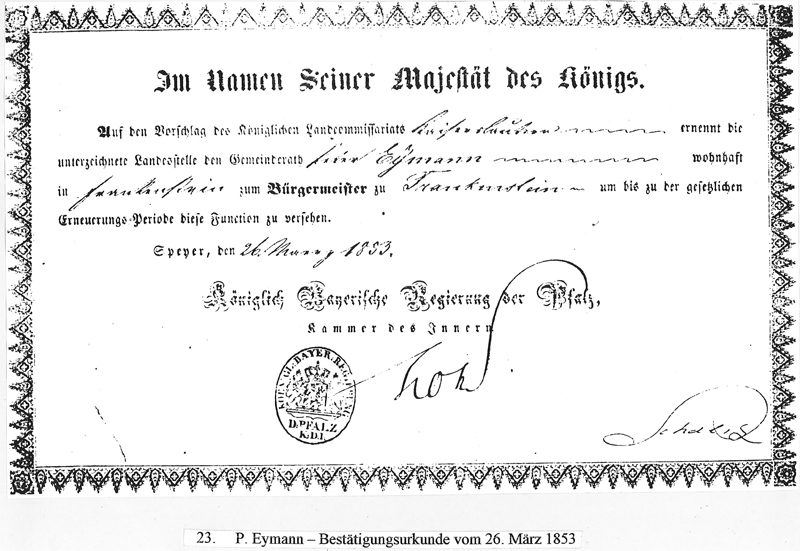 Im Namen Seiner Majestät des Königs.
Auf den Vorschlag des Königlichen Landcommissariats Kaiserslautern ernennt die
unterzeichnete Landesstelle den Gemeinderath Peter Eymann wohnhaft
in Frankenstein zum Bürgermeister zu Frankenstein um bis zu der gesetzlichen
Erneuerungs-Periode diese Function zu versehen.
Speyer, den 26. Maerz 1853.
Königlich Bayerische Regierung der Pfalz,
Kammer des Innern
KÖNIGL. BAYER. REGIERUNG
D. PFALZ
K.D.I.
23. P. Eymann – Bestätigungsurkunde vom 26. März 1853